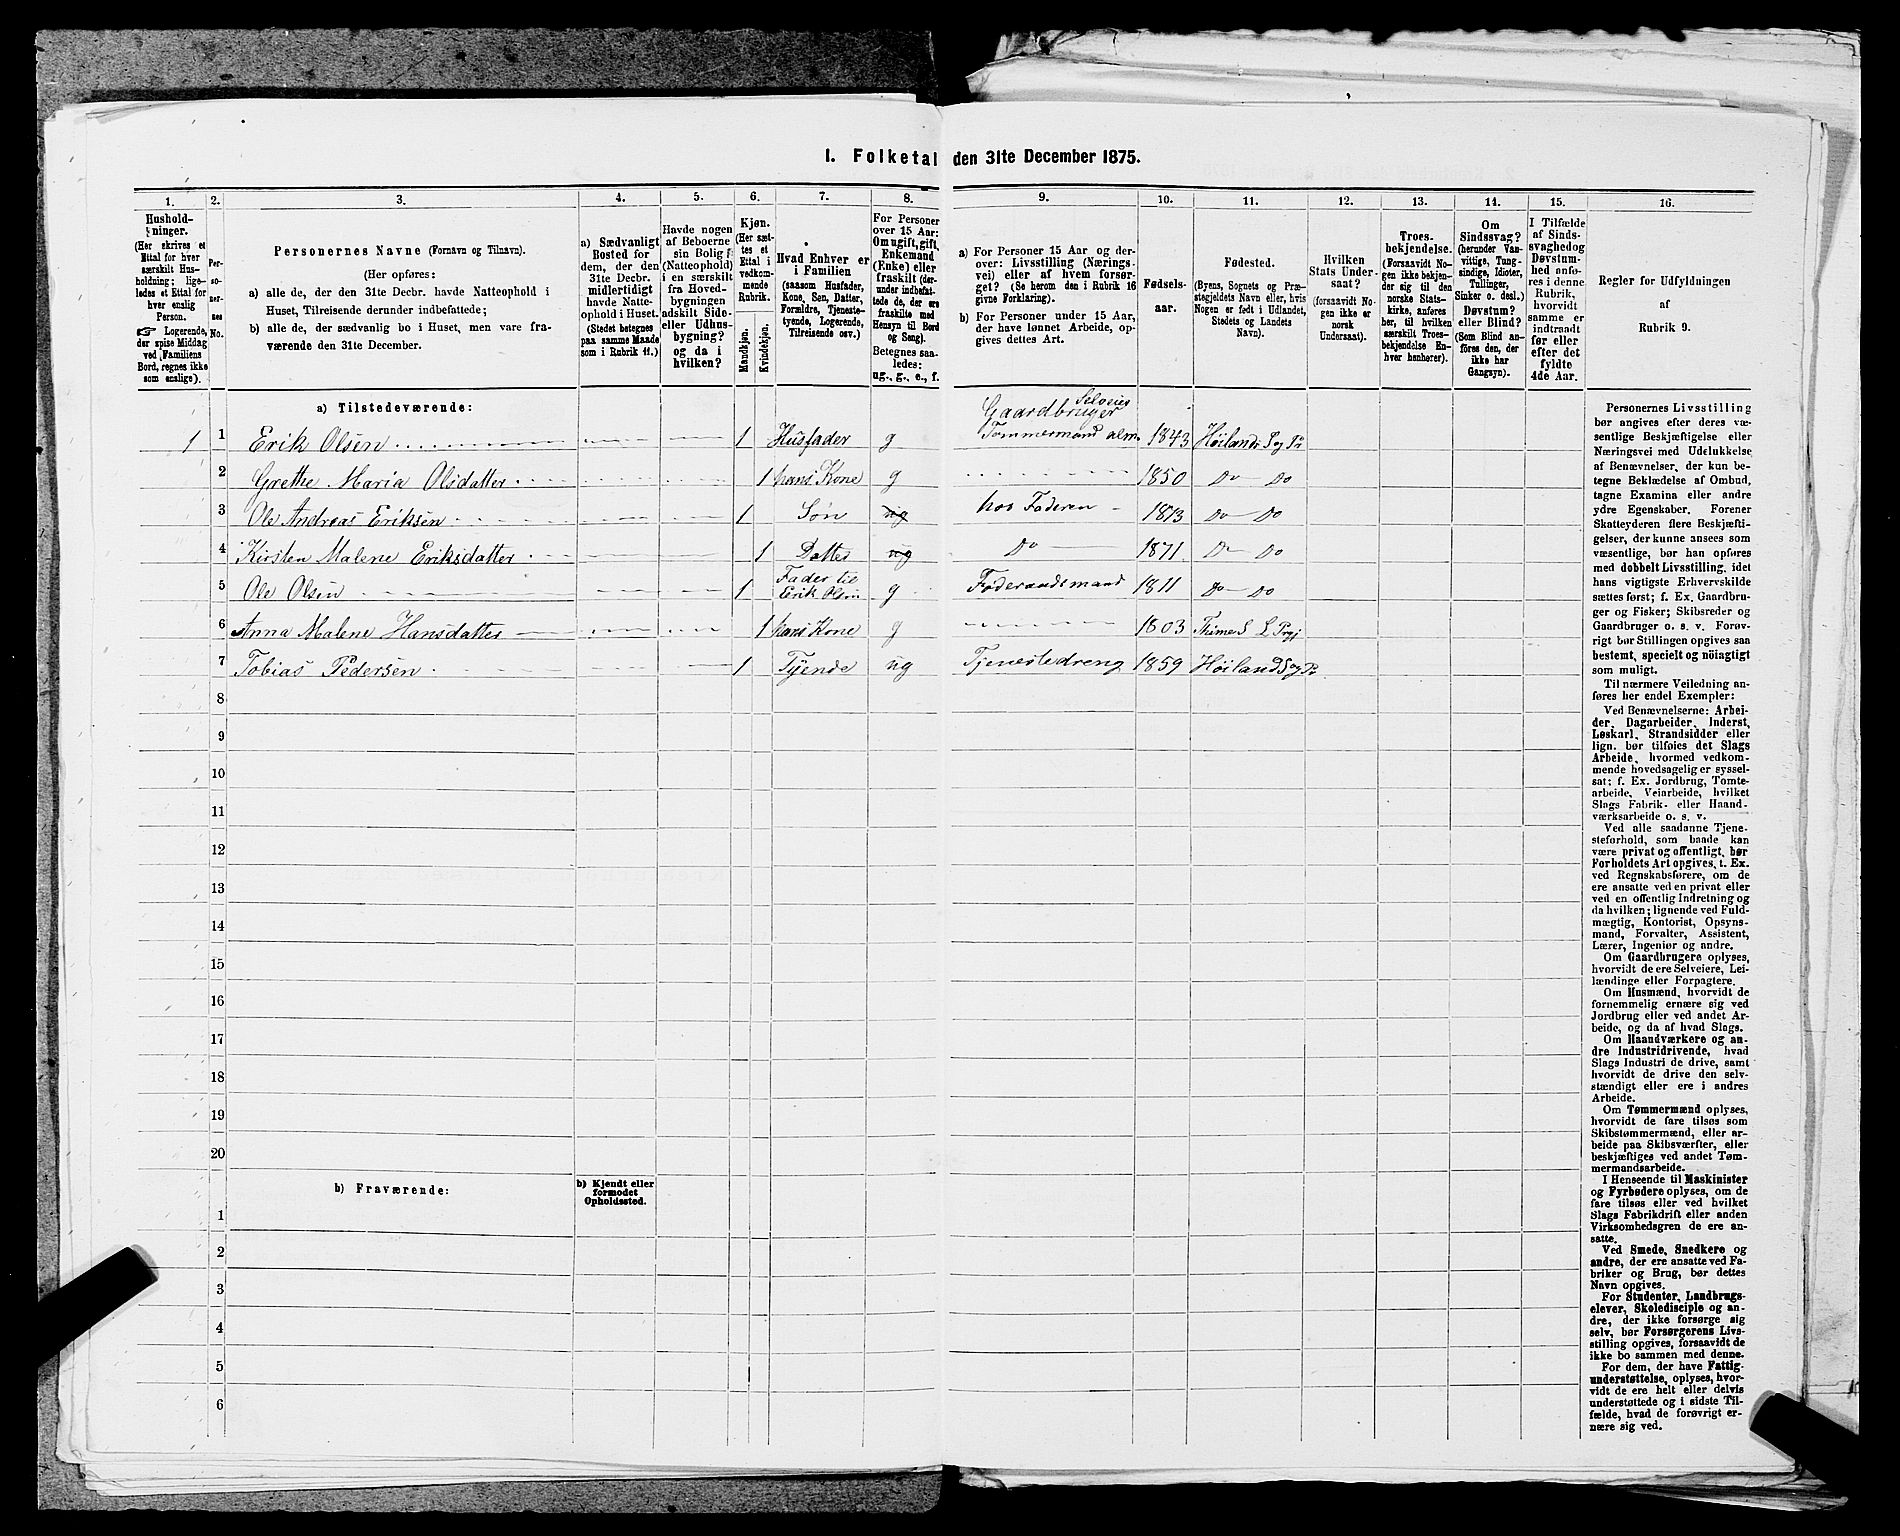 I. Folketal den 31te December 1875.
1. 2. 3. 4. 5. 6. 7. 8. 9. 10. 11. 12. 13. 14. 15. 16.
Hushold-
ninger.
(Her skrives et
Ettal for hver
særskilt Hus-
holdning; lige-
ledes et Ettal for
hver enslig
Person.
☞ Logerende,
der spise Middag
ved Familiens
Bord, regnes ikke
som enslige).
Per-
so-
ner-
nes
No.
Personernes Navne (Fornavn og Tilnavn).
(Her opføres:
a) alle de, der den 31te Decbr. havde Natteophold i
Huset, Tilreisende derunder indbefattede;
b) alle de, der sædvanlig bo i Huset, men vare fra-
værende den 31te December.
a) Sædvanligt
Bosted for
dem, der den
31te Decbr.
midlertidigt
havde Natte-
ophold i Huset.
(Stedet betegnes
paa samme Maade
som i Rubrik 11.)
Havde nogen
af Beboerne
sin Bolig
(Natteophold)
i en særskilt
fra Hoved-
bygningen
adskilt Side-
eller Udhus-
bygning?
og da i
hvilken?
Kjøn.
(Her sæt-
tes et
Ettal i
vedkom-
mende
Rubrik.
Mandkjøn.
Kvindekjøn.
Hvad Enhver er
i Familien
(saasom Husfader,
Kone, Søn, Datter,
Forældre, Tjeneste-
tyende, Logerende,
Tilreisende osv.)
For Personer
over 15 Aar:
Om ugift, gift,
Enkemand
(Enke) eller
fraskilt (der-
under indbefat-
tede de, der ere
fraskilte med
Hensyn til Bord
og Seng).
Betegnes saa-
ledes:
ug., g., e., f.
a) For Personer 15 Aar og der-
over: Livsstilling (Nærings-
vei) eller af hvem forsør-
get? (Se herom den i Rubrik 16
givne Forklaring).
b) For Personer under 15 Aar,
der have lønnet Arbeide, op-
gives dettes Art.
Fødsels-
aar.
Fødested.
(Byens, Sognets og Præ-
stegjeldets Navn eller, hvis
Nogen er født i Udlandet,
Stedets og Landets
Navn).
Hvilken
Stats Under-
saat?
(forsaavidt No-
gen ikke er
norsk
Undersaat).
Troes-
bekjendelse.
(Forsaavidt No-
gen ikke bekjen-
der sig til den
norske Stats-
kirke, anføres
her, til hvilken
særskilt Troes-
bekjendelse En-
hver henhører).
Om
Sindssvag?
(herunder Van-
vittige, Tung-
sindige, Idioter,
Tullinger,
Sinker o. desl.)
Døvstum?
eller Blind?
(Som Blind an-
føres den, der
ikke har
Gangsyn).
I Tilfælde
af Sinds-
svaghed og
Døvstum-
hed anfø-
res i denne
Rubrik,
hvorvidt
samme er
indtraadt
før eller
efter det
fyldte
4de Aar.
Regler for Udfyldningen
af
Rubrik 9.
a) Tilstedeværende:
Gaardbruger Selveier
1 1 Erik Olsen 1 Husfader g Tømmermand alm. 1843 Høilands S og Pr
2 Grethe Maria Olsdatter 1 hans Kone g 1850 Do Do
3 Ole Andreas Eriksen 1 Søn ug hos Faderen 1873 Do Do
4 Kirsten Malene Eriksdatter 1 Datter ug Do 1871 Do Do
5 Ole Olsen 1 Fader til
Erik Olsen g Føderaadsmand 1811 Do Do
6 Anna Malene Hansdatter 1 hans Kone g 1803 Thime S L Prgj
7 Tobias Pedersen 1 Tyende ug Tjenestedreng 1859 Høiland S og Pr
8
9
10
11
12
13
14
15
16
17
18
19
20
b) Fraværende:
b) Kjendt eller
formodet
Opholdssted.
1
2
3
4
5
6
Personernes Livsstilling
bør angives efter deres væ-
sentlige Beskjæftigelse eller
Næringsvei med Udelukkelse
af Benævnelser, der kun be-
tegne Beklædelse af Ombud,
tagne Examina eller andre
ydre Egenskaber. Forener
Skatteyderen flere Beskjæfti-
gelser, der kunne ansees som
væsentlige, bør han opføres
med dobbelt Livsstilling, idet
hans vigtigste Erhvervskilde
sættes først; f. Ex. Gaardbru-
ger og Fisker; Skibsreder og
Gaardbruger o. s. v. Forøv-
rigt bør Stillingen opgives saa
bestemt, specielt og nöiagtigt
som muligt.
Til nærmere Veiledning an-
føres her endel Exempler:
Ved Benævnelserne: Arbei-
der, Dagarbeider, Inderst,
Løskarl, Strandsidder eller
lign. bør tilføies det Slags
Arbeide, hvormed vedkom-
mende hovedsagelig er syssel-
sat; f. Ex. Jordbrug, Tomte-
arbeide, Veiarbeide, hvilket
Slags Fabrik- eller Haand-
værksarbeide o. s. v.
Ved alle saadanne Tjene-
steforhold, som baade kan
være privat og offentligt, bør
Forholdets Art opgives, t. Ex.
ved Regnskabsførere, om de
ere ansatte ved en privat eller
ved en offentlig Indretning og
da hvilken; lignende ved Fuld-
mægtig, Kontorist, Opsyns-
mand, Forvalter, Assistent,
Lærer, Ingeniør og andre.
Om Gaardbrugere oplyses,
hvorvidt de ere Selveiere, Lei-
lændinge eller Forpagtere.
Om Husmænd, hvorvidt de
fornemmelig ernære sig ved
Jordbrug eller ved andet Ar-
beide, og da af hvad Slags.
Om Haandværkere og an-
dre Industridrivende, hvad
Slags Industri de drive, samt
hvorvidt de drive den selv-
stændigt eller ere i andres
Arbeide.
Om Tømmermænd oplyses,
hvorvidt de fare tilsøs som
Skibstømmermænd, eller ar-
beide paa Skibsværfter, eller
beskjæftiges ved andet Tøm-
mermandsarbeide.
I Henseende til Maskinister
og Fyrbødere oplyses, om de
fare tilsøs eller ved hvilket
Slags Fabrikdrift eller anden
Virksomhedsgren de ere an-
satte.
Ved Smede, Snedkere og
andre, der ere ansatte ved Fa-
briker og Brug, bør dettes
Navn opgives.
For Studenter, Landbrugs-
elever, Skoledisciple og an-
dre, der ikke forsørge sig
selv, bør Forsørgerens Livs-
stilling opgives, forsaavidt de
ikke bo sammen med denne.
For dem, der have Fattig-
understøttelse, oplyses, hvor-
vidt de ere helt eller delvis
understøttede og i sidste Til-
fælde, hvad de forøvrigt er-
nære sig ved.